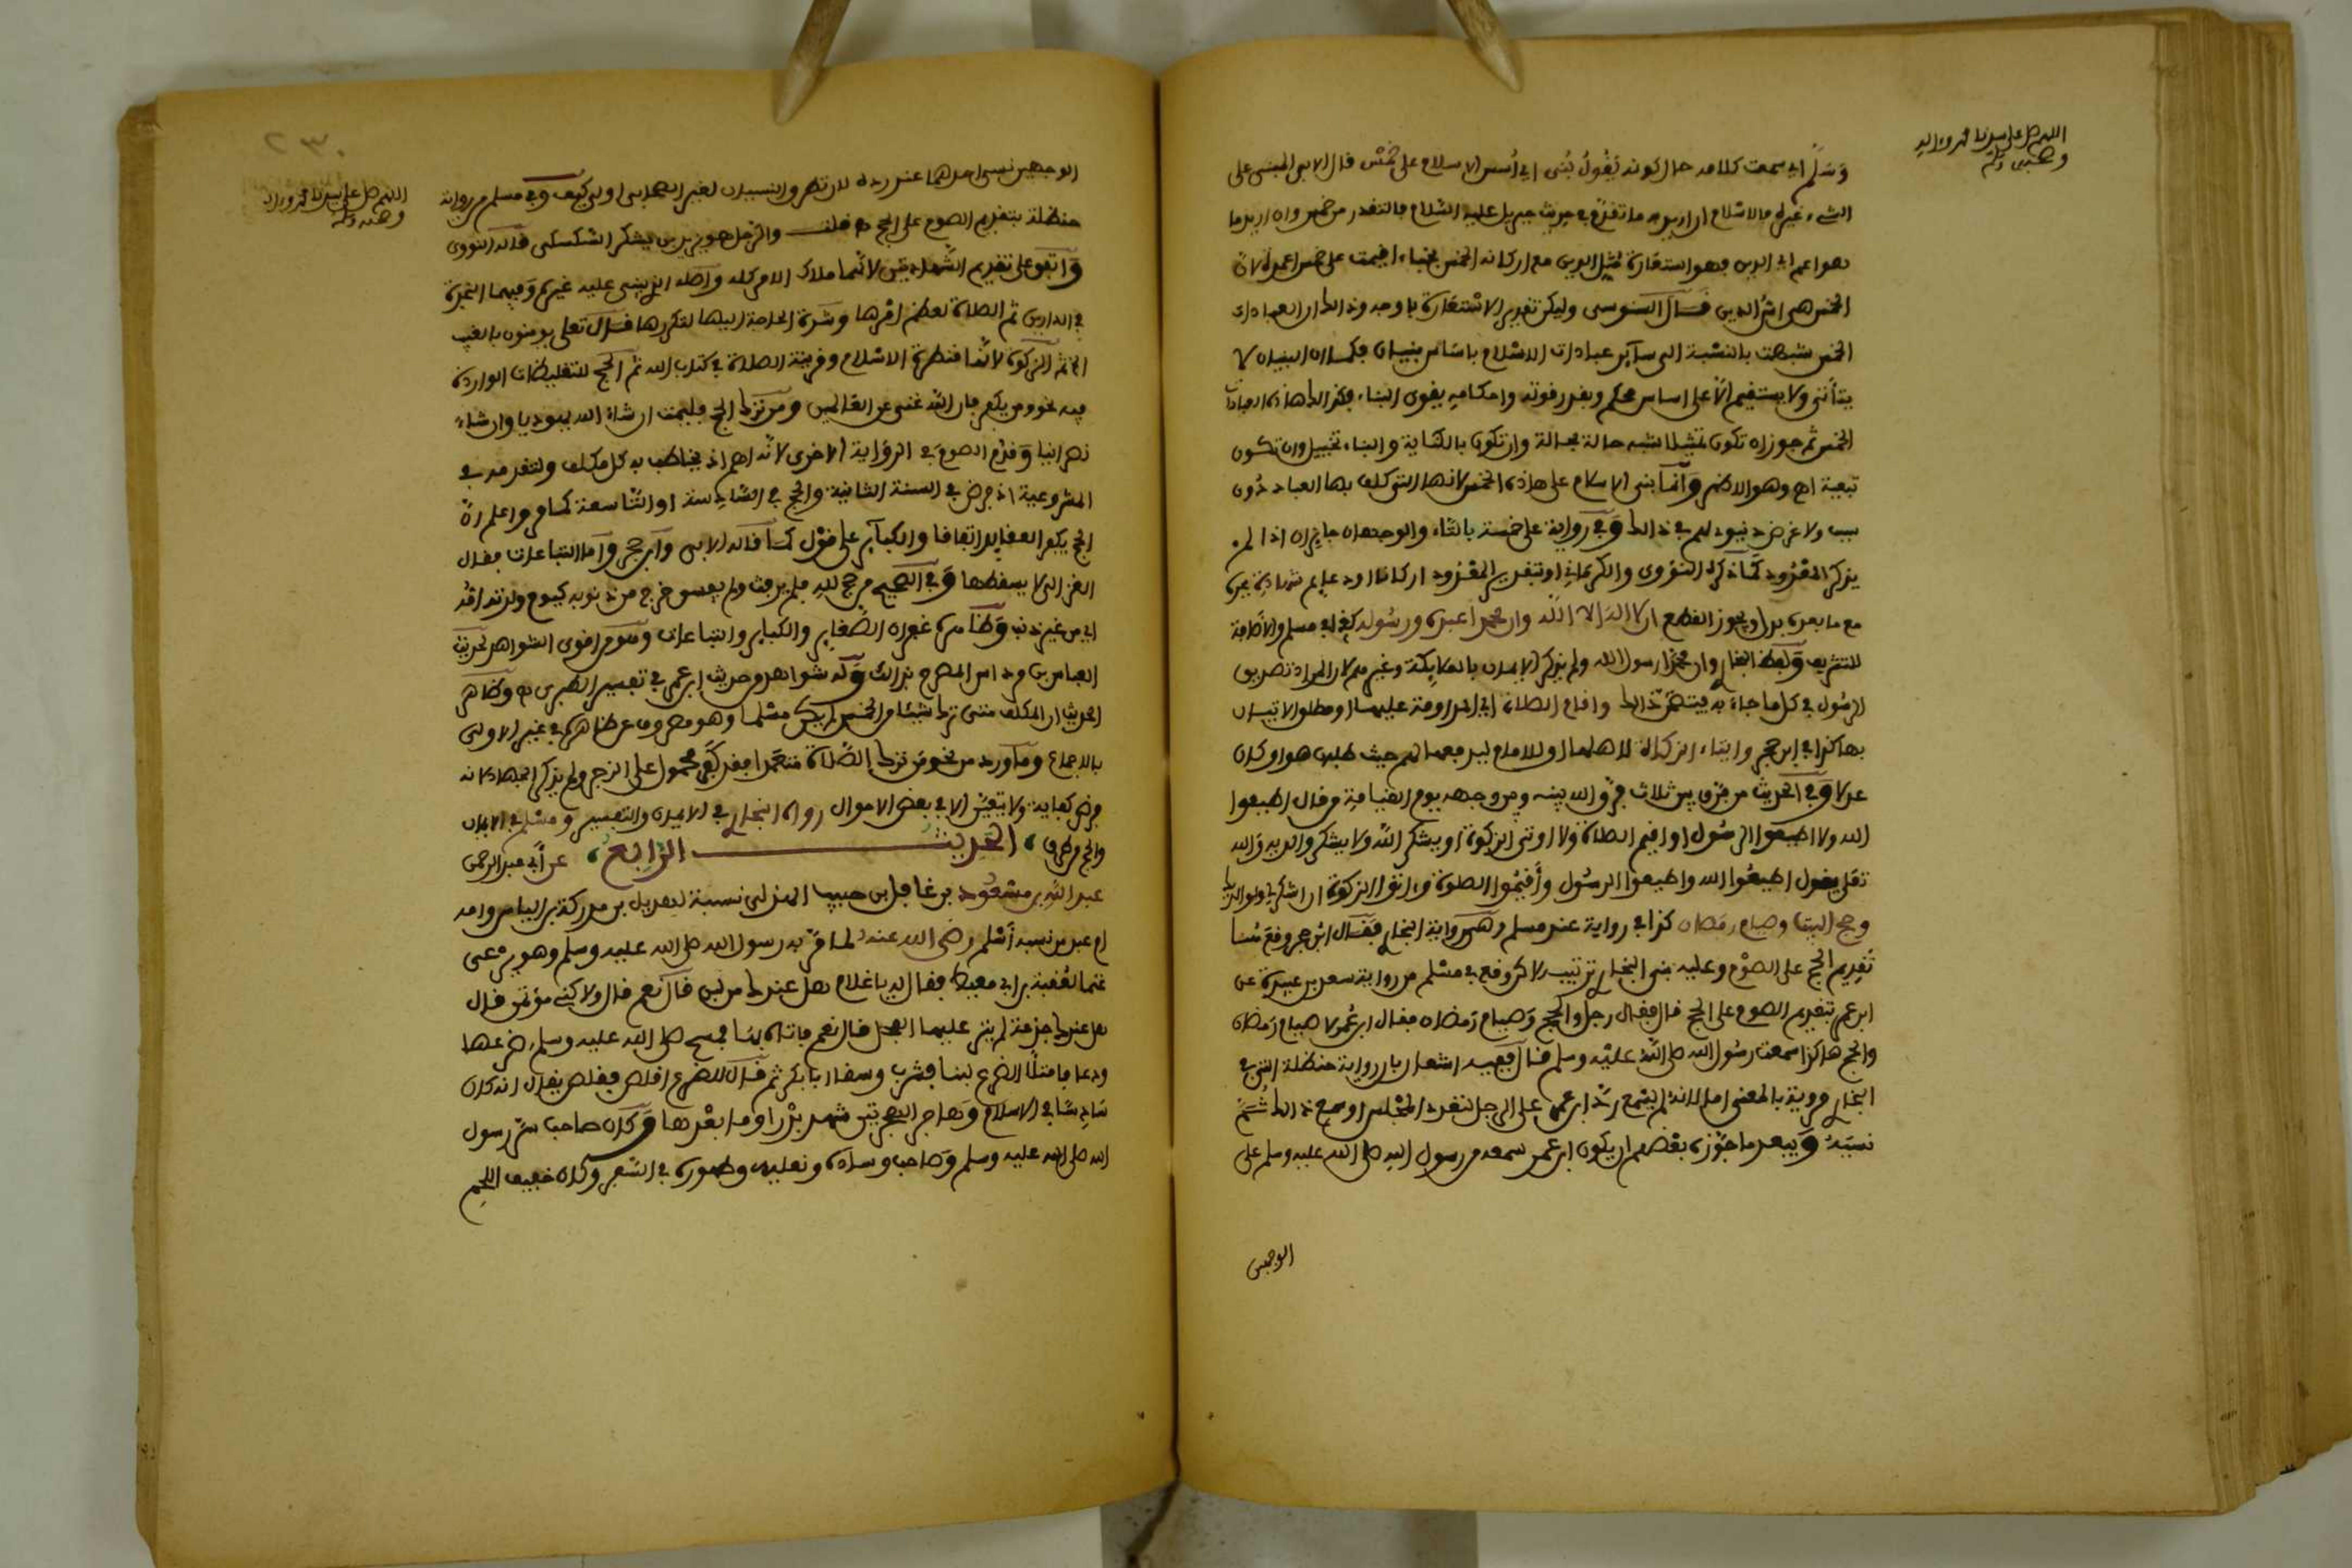 اللهم صل على سيدنا محمد وءاله
وصحبه وسلم
وَسَلَّمَ اي سمعت كلامه حال كونه يَقُولُ بُنِى اي أُسس الاسلام على خَمْسٍ قال الابي المبنى على
الشيء غيره فالاسلام ان اريد به ما تقدم في حديث جبريل عليه السلام فالتقدير من خمس وان اريد ما
هو اعم اي الدين فهو استعارة لمثل الدين مع اركانه الخمس بخباء اقيمت على خمس اعمدة لان
الخمس هي اس الدين قال السنوسى وليكن تقرير الاستعارة باوجه وذالك ان العبادات
الخمس شبهت بالنسبة الى سآير عبادات الاسلام باساس بنيان فكما ان البنيان لا
يتأتى ولا يستقيم الا على اساس محكم وبقدر قوته واحكامه يقوى البناء فكذالك هاذه العبادات
الخمس ثم جوز ان تكون تمثيلا شبه حالة بحالة وان تكون بالكناية والبناء تخييل وان تكون
تبعية اهـ وهو الاظهر وَانّمَا بنى الاسلام على هاذه الخمس لانها التى كلف بها العباد دُون
سبب ولا غرض دنيوي لهم في ذالك وَفي رواية على خمسة بالتاء والوجهان جايزان اذا لم
يذكر المعدود كما ذكره النووى والكرمانى او بتقدير المعدود اركانا او دعايم شهادة بجره
مع ما بعده بدل ويجوز القطع ان لا اله الا الله وان محمدا عبده ورسوله كذا في مسلم والاضافة
للتشريف وَلفظ البخاري وان محمدا رسول الله ولم يذكر الايمان بالملايكة وغيرهم لان المراد تصديق
الرسُول في كل ما جاء به فيتضمن ذالك واقام الصلاة اي المداومة عليها او مطلق الاتيان
بها كذا في ابن حجر وايتاء الزكاة لاهلها او للامام ليدفعها لهم حيث طلبها هو او كان
عدلا وَفي الحديث من فرق بين ثلاث فرق الله بينه وبين وجهه يوم القيامة من قال اطيعوا
الله ولا اطيعوا الرسُول او اقيم الصلاة ولا اوتي الزكوة او يشكر الله ولا يشكر والديه والله
تعلى يقول اطيعُوا الله واطيعوا الرسُول وأقيمُوا الصلوة وءاتوا الزكوة ان اشكر لي ولوالديك
وحج البيت وصيام رمضان كذا في رواية عند مسلم وَهي رواية البخاري فقال ابن حجر وقع هُنا
تقديم الحج على الصوْم وعليه بنى البخاري ترتيبه لاكن وقع في مسلم من رواية سعد بن عبيدة عن
ابن عمر تقديم الصوم على الحج قال فقال رجل والحج وَصيام رَمضان فقال ابن عُمر لا صيام رَمضان
والحج هاكذا سمعت رسُول الله صلى الله عليْه وسلم قال ففيه اشعار بان رواية حنظلة التي في
البخاري مروية بالمعنى اما لانه لم يسْمع ردّ ابن عمر على الرجل لتعدد المجْلس او سمع ذالك ثُمَّ
نسيَهُ وَيبعد ما جوّزه بعْضهم ان يكون ابن عمر سمعه من رسول الله صلى الله عليه وسلم على
الوجهين
٢٣٠
اللهم صل على سيدنا محمد وءاله
وصحبه وسلم
الوجهين نسى احدهما عند رده لان تطرق النسيان لغير الصحابي اولى كيف وفي مسلم من رواية
حنظلة بتقديم الصوم على الحج قلت والرجل هو يزيد بن بشكر السكسكى قاله النووى
وَاتفق على تقديم الشهادتين لانهما ملاك الامر كله واصله الذي يبنى عليه غيره وَفيهما النجاة
في الدارين ثم الصلاة لعظم امْرها وشدة الحاجة اليها لتكررها قال تعلى يومنون بالغيب
الخ ثم الزكوة لانها قنطرة الاسْلام وقرينة الصلاة في كتاب الله ثم الحج للتغليظات الواردة
فيه نحو ومن يكفر فان الله غني عن العالمين ومن ترك الحج فليمت ان شاء الله يهوديا وان شاء
نصرانيا وَقدم الصوم في الرواية الاخرى لانه اهم اذ يخاطب به كل مكلف ولتقدمه في
المشروعية اذ فرض في السنة الثانية والحج في السّادسة او التاسعة كما مر واعلم ان
الحج يكفر الصغاير اتفاقا والكبآير على قوْل كما قاله الابي وَابن حجر وَاما التباعات فقال
القرافي لا يسقطها وَفي الصحيح من حج لله فلم يرفث ولم يفسق خرج من ذنوبه كيوم ولدته امّه
اي من غير ذنب وَظاهره غفران الصَّغاير والكباير والتباعات وهو من اقوى الشواهد لحديث
العباس بن مرداس المصرح بذالك وَله شواهد من حديث ابن عمر في تفسير الطبري وظاهر
الحديث ان المكلف متى ترك شيئا من الخمس لم يكن مسْلما وهو مصروف عن ظاهره في غير الاولى
بالاجماع وَما ورد من نحو من ترك الصَّلاة متعمدا فقد كفر محمول على الزجر ولم يذكر الجهاد لانه
فرض كفاية ولا يتعيّن الا في بعض الاحوال رواه البخاري في الايمان والتفسير ومسْلم في الايمان
والحج من طرق الحديث الرابع عن أبي عبد الرحمن
عبد الله بن مسْعُود بن غافل بن حبيب الهذلي نسبة لهذيل بن مدركة بن الياس وامه
ام عبد من نسبه أسْلم رضي الله عنه لما مرّ به رسول الله صلى الله عليه وسلم وهو يرْعى
غنما لعُقبة بن ابي معيط فقال له يا غلام هل عندك من لبن قال نعم قال ولاكنى مؤتمن قال
هل عندك جزعة لم ينز عليها الفحل قال نعم فاتاه بها فمسح صلى الله عليه وسلم ضرعها
ودعا فامتلأ الضرع لبنا فشرب وسقا ابا بكر ثم قال للضرع اقلص فقلص يقال انه كان
سَادسًا في الاسلام وَهاجر الهجرتين شهد بدْرا وما بعْدها وَكان صاحب سرّ رسول
الله صلى الله عليه وسلم وَصاحب وساده ونعليه وطهوره في السّفر وكان خفيف اللحم